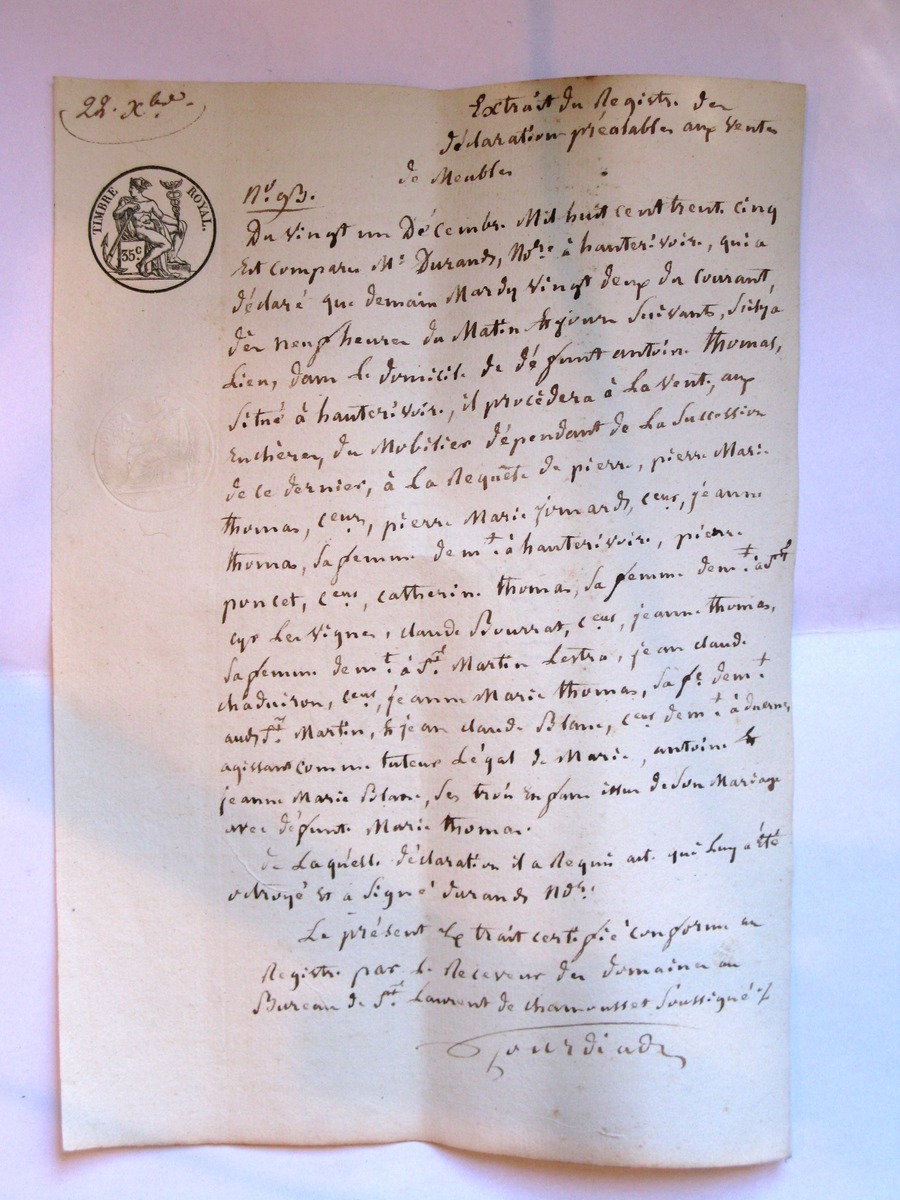 22. Xbre.
TIMBRE ROYAL.
35c
Extrait du Registre des
déclarations préalables aux ventes
de Meubles
N° 93.
Du vingt un Décembre Mil huit cent trente cinq
Est comparu Me Durand, Nore à hauterivoire, qui a
déclaré que demain Mardy vingt deux du courant,
dès neuf heures du Matin & jours Suivants, Si il y a
Lieu, dans le domicile de défunt antoine thomas,
Situé à hauterivoire, il procèdera à La vente, aux
Enchères, du Mobilier dépendant de La Succession
de ce dernier, à La Requête de pierre, pierre Marie
thomas, ceurs, pierre Marie jomard, ceur, jeanne
thomas, sa femme demt à hauterivoire, pierre
poncet, ceur, catherine thomas, sa femme demt à St
cyr Les vignes, claude Bourrat, ceur, jeanne thomas,
Sa femme demt à St Martin Lestra, jean claude
chaduiron, ceur, jeanne Marie thomas, sa fe demt
aud. St Martin, & jean claude Blanc, ceur demt à duerne,
agissant comme tuteur Légal de Marie, antoine &
jeanne Marie Blanc, Ses trois Enfans issus de Son Mariage
avec défunte Marie thomas.
de Laquelle déclaration il a Requis acte qui Luy a été
octroyé Et a Signé durand Nore
Le présent Extrait certifié conforme au
Registre par Le Receveur des domaines au
Bureau de St Laurent de chamousset Soussigné ./.